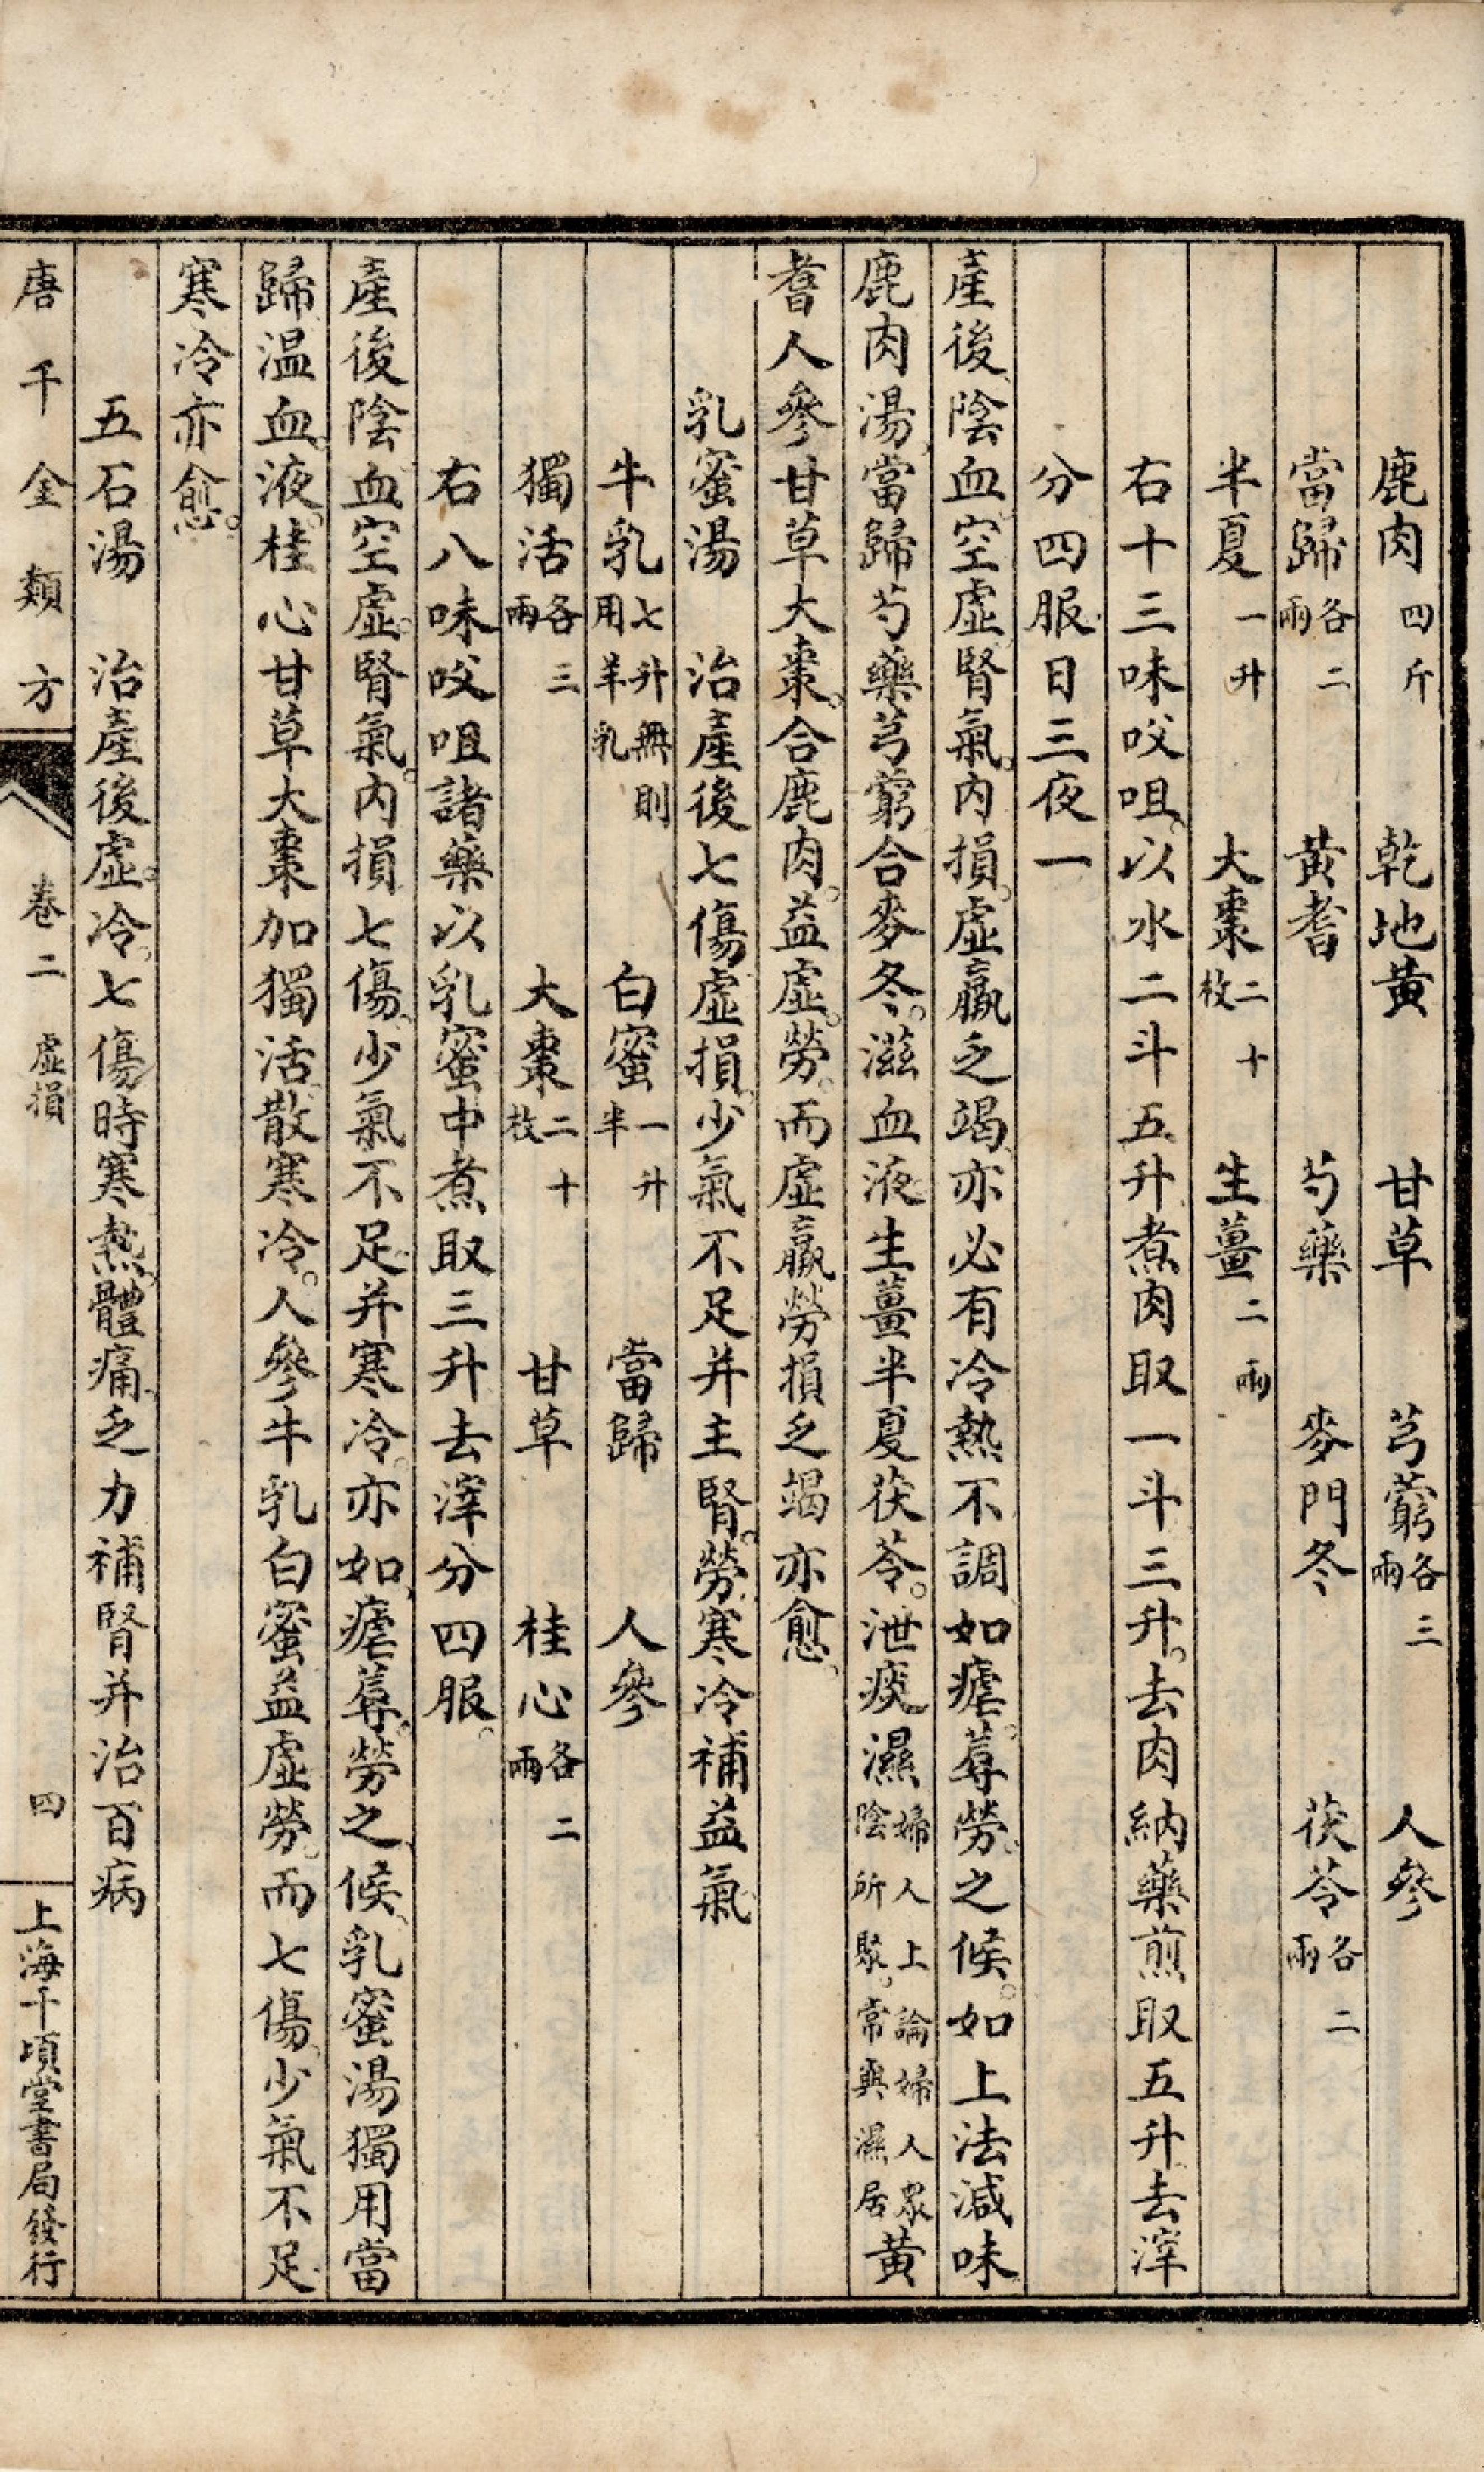 鹿肉四斤　乾地黃　甘草　芎藭各三兩　人參
當歸各二兩　黃耆　芍藥　麥門冬　茯苓各二兩
半夏一升　大棗二十枚　生薑二兩
右十三味㕮咀以水二斗五升煮肉取一斗三升。去肉納藥煎取五升去滓
分四服日三夜一
產後陰血空虛腎氣。內損。虛羸乏竭亦必有冷熱不調如瘧。蓐勞。之候。如上法減味
鹿肉湯當歸芍藥芎藭合麥冬。滋血液生薑半夏茯苓。泄痰濕婦人上論婦人眾陰所聚。常與濕居黃
耆人參甘草大棗。合鹿肉。益虛。勞。而虛羸勞損乏竭亦愈
乳蜜湯　治產後七傷虛損。少氣不足并主腎。勞寒冷補益氣
牛乳七升無則用羊乳　白蜜一升半　當歸　人參
獨活各三兩　大棗二十枚　甘草　桂心各二兩
右八味㕮咀諸藥以乳蜜中煮取三升去滓分四服。
產後陰血空虛。腎氣。內損七傷少氣不足并寒冷。亦如瘧蓐勞之候乳蜜湯獨用當
歸溫血。液。桂心甘草大棗加獨活散寒冷。人參牛乳白蜜益虛勞。而七傷少氣不足
寒冷亦愈。
五石湯　治產後虛。冷。七傷時寒熱。體痛乏力補腎并治百病
唐千金類方　卷二　虛損　四　上海千頃堂書局發行